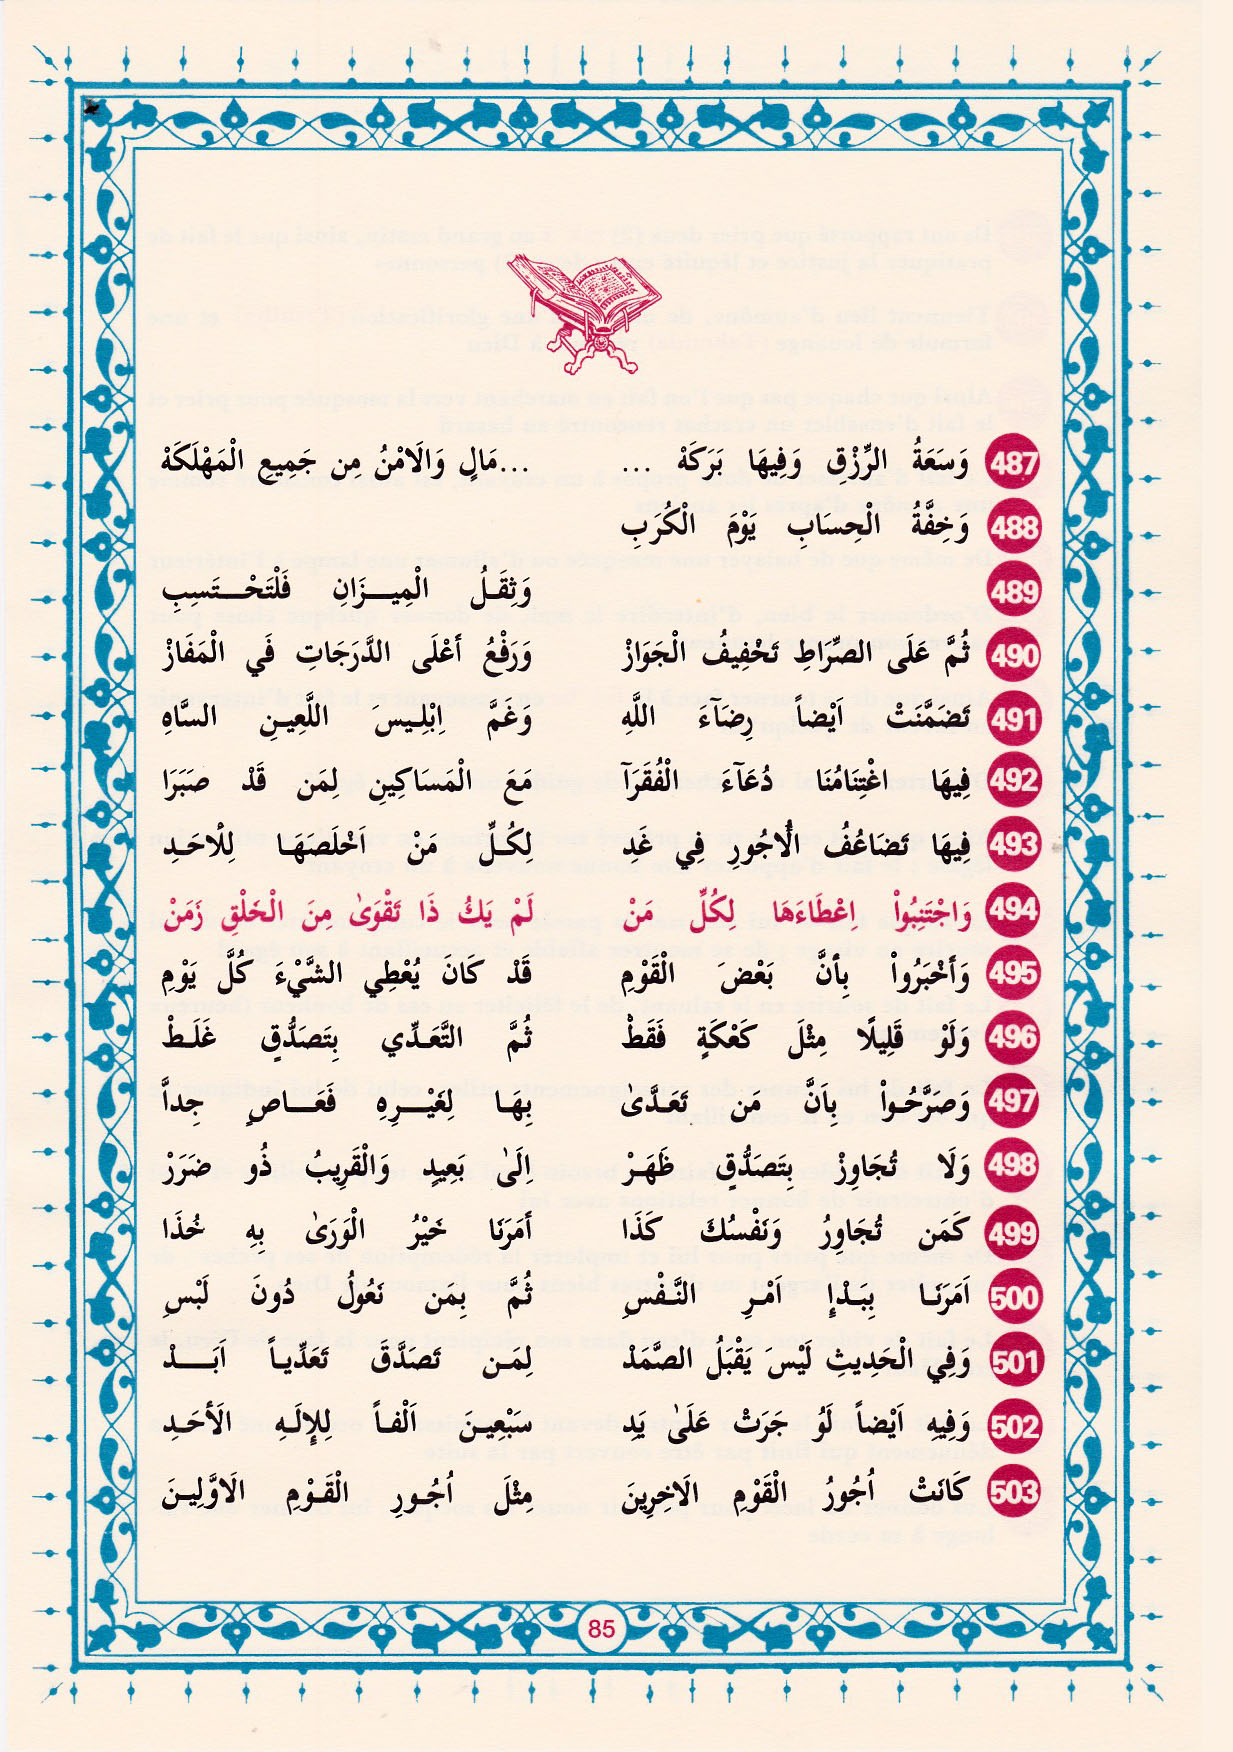 487 وَسَعَةُ الرِّزْقِ وَفِيهَا بَرَكَهْ ... ...مَالٍ وَالَامْنُ مِن جَمِيعِ الْمَهْلَكَهْ
488 وَخِفَّةُ الْحِسَابِ يَوْمَ الْكُرَبِ
489 وَثِقَلُ الْمِيزَانِ فَلْتَحْتَسِبِ
490 ثُمَّ عَلَى الصِّرَاطِ تَخْفِيفُ الْجَوَازْ وَرَفْعُ أَعْلَى الدَّرَجَاتِ فَي الْمَفَازْ
491 تَضَمَّنَتْ اَيْضاً رِضَآءَ اللَّهِ وَغَمَّ اِبْلِيسَ اللَّعِينِ السَّاهِ
492 فِيهَا اغْتِنَامُنَا دُعَآءَ الْفُقَرَآ مَعَ الْمَسَاكِينِ لِمَن قَدْ صَبَرَا
493 فِيهَا تَضَاعُفُ الُاجُورِ فِي غَدِ لِكُلِّ مَنْ اَخْلَصَهَا لِلَاحَدِ
494 وَاجْتَنِبُواْ اِعْطَاءَهَا لِكُلِّ مَنْ لَمْ يَكُ ذَا تَقْوَىٰ مِنَ الْخَلْقِ زَمَنْ
495 وَأَخْبَرُواْ بِأَنَّ بَعْضَ الْقَوْمِ قَدْ كَانَ يُعْطِي الشَّيْءَ كُلَّ يَوْمِ
496 وَلَوْ قَلِيلًا مِثْلَ كَعْكَةٍ فَقَطْ ثُمَّ التَّعَدِّي بِتَصَدُّقٍ غَلَطْ
497 وَصَرَّحُواْ بِاَنَّ مَن تَعَدَّى بِهَا لِغَيْرِهِ فَعَاصٍ جِداًّ
498 وَلَا تُجَاوِزْ بِتَصَدُّقٍ ظَهَرْ اِلَىٰ بَعِيدٍ وَالْقَرِيبُ ذُو ضَرَرْ
499 كَمَن تُجَاوِرُ وَنَفْسُكَ كَذَا أَمَرَنَا خَيْرُ الْوَرَىٰ بِهِ خُذَا
500 اَمَرَنَا بِبَدْإِ اَمْرِ النَّفْسِ ثُمَّ بِمَن نَعُولُ دُونَ لَبْسِ
501 وَفِي الْحَدِيثِ لَيْسَ يَقْبَلُ الصَّمَدْ لِمَن تَصَدَّقَ تَعَدِّياً اَبَدْ
502 وَفِيهِ اَيْضاً لَوُ جَرَتْ عَلَىٰ يَدِ سَبْعِينَ اَلْفاً لِلإِلَهِ الَأحَدِ
503 كَانَتْ اُجُورُ الْقَوْمِ الَاخِرِينَ مِثْلَ اُجُورِ الْقَوْمِ الَاوَّلِينَ
85